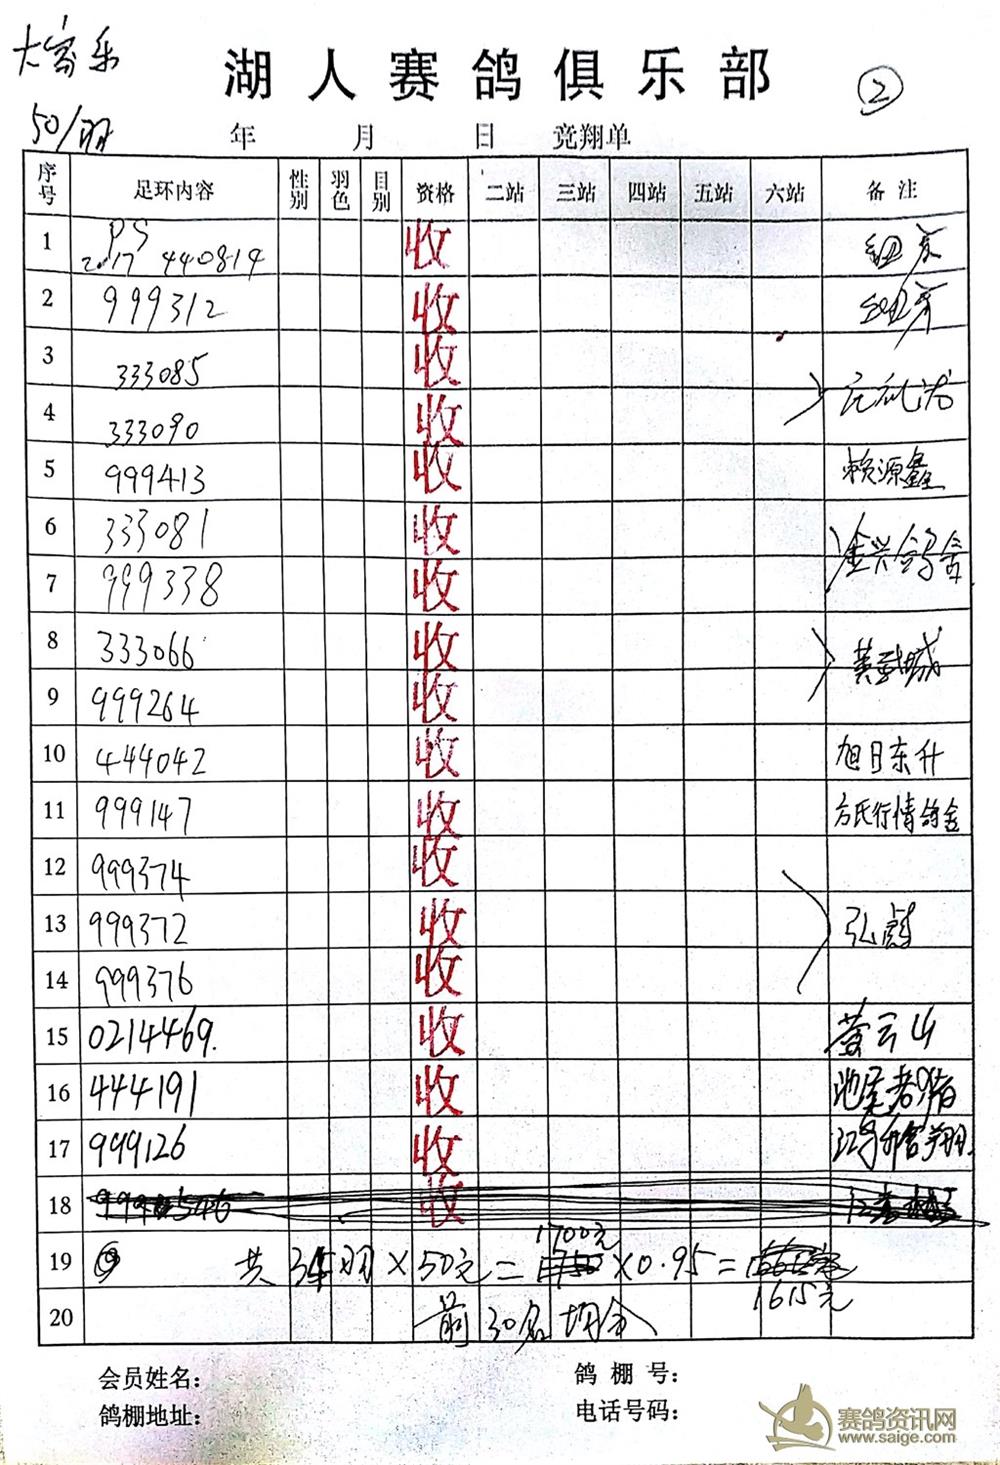 大家乐
湖人赛鸽俱乐部
②
50/羽
年 月 日 竞翔单
序号 足环内容 性别 羽色 目别 资格 二站 三站 四站 五站 六站 备注
1 PS 2017 440814 收
2 999312 收
3 333085 收
4 333090 收
5 999413 收 赖源鑫
6 333081 收 金兴鸽舍
7 999338 收
8 333066 收 黄武城
9 999264 收
10 444042 收 旭日东升
11 999147 收 方氏行情鸽舍
12 999374 收
13 999372 收
14 999376 收
15 0214469. 收
16 444191 收
17 999126 收
18 收
19 共34羽×50元=1700元×0.95=1615元
20 前30名均金
会员姓名: 鸽棚号:
鸽棚地址: 电话号码:
赛鸽资讯网
www.saige.com